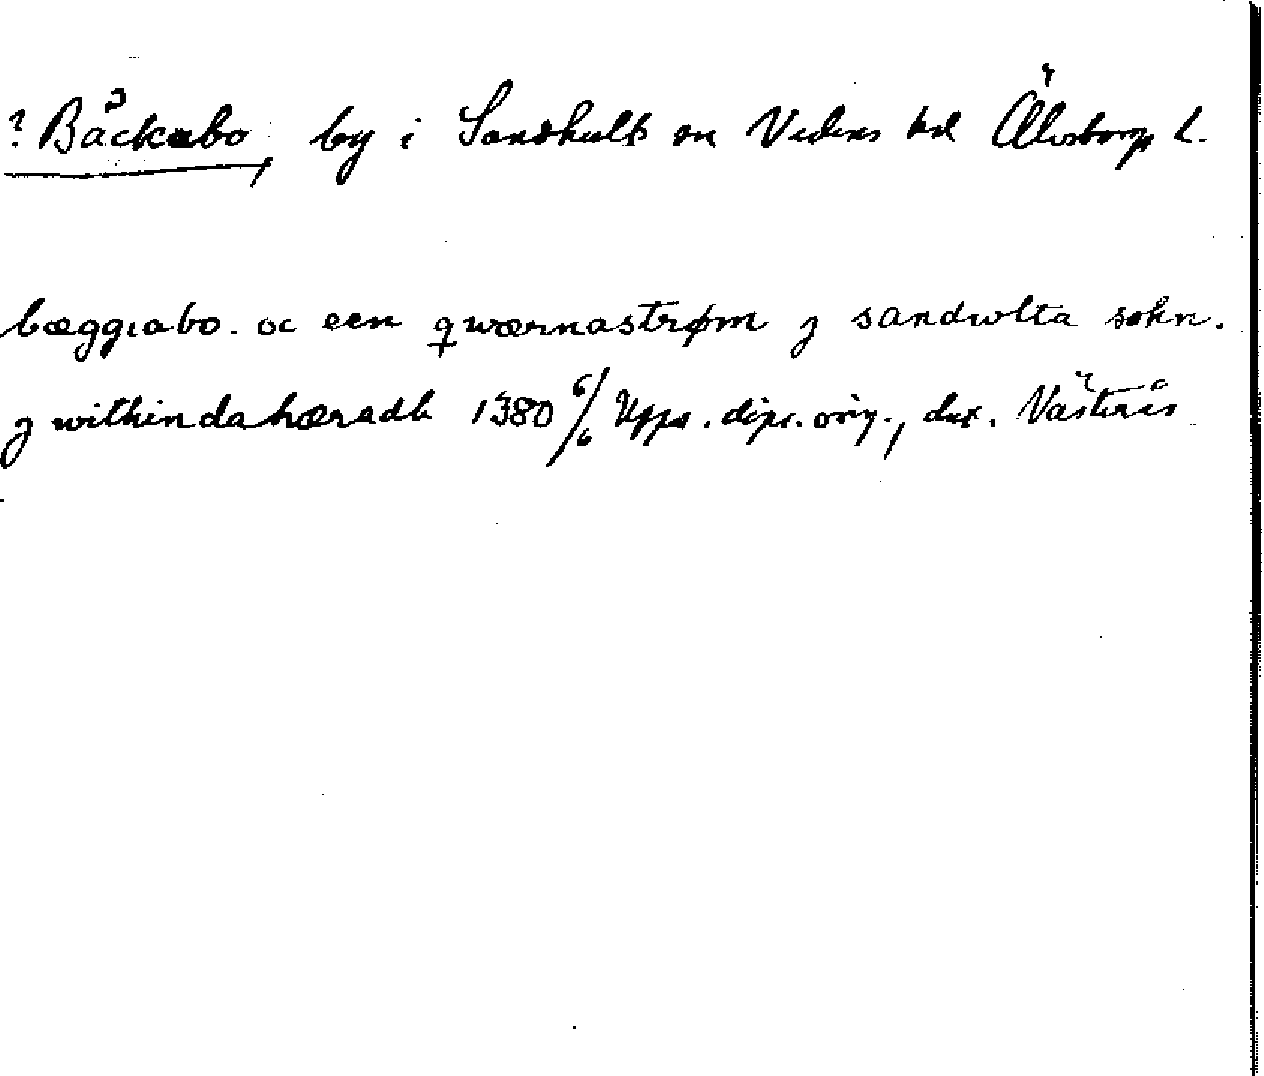 ? Bäckabo, by i Sandhults sn Vedens hd Älvsborgs l.
bæggiabo. oc een qwærnastrøm j sandwlta sokn.
j withindahæradh 1380 6/6 Upps. dipl. orig., dat. Västerås